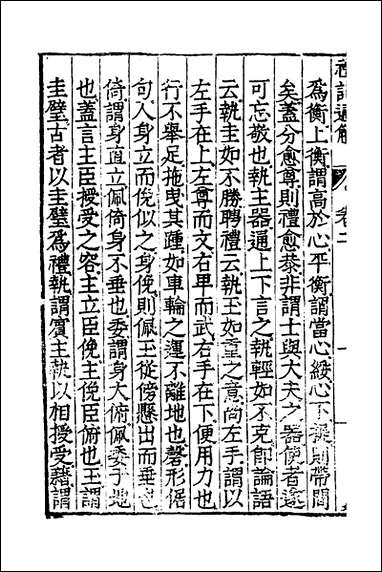 禮記通解 卷二
爲衡上衡謂高於心平衡謂當心綏心下提則帶間
矣蓋分愈尊則禮愈恭非謂士與大夫之器使者遂
可忘敬也執主器通上下言之執輕如不克即論語
云執圭如不勝聘禮云執玉如重之意尚左手謂以
左手在上左尊而文右卑而武右手在下便用力也
行不舉足拖曳其踵如車輪之運不離地也磬形倨
句人身立而俛似之身俛則佩玉從傍懸出而垂也
倚謂身直立佩倚身不垂也委謂身大俯佩委于地
也蓋言主臣授受之容主立臣俛主俛臣俯也玉謂
圭璧古者以圭璧爲禮執謂賓主執以相授受藉謂